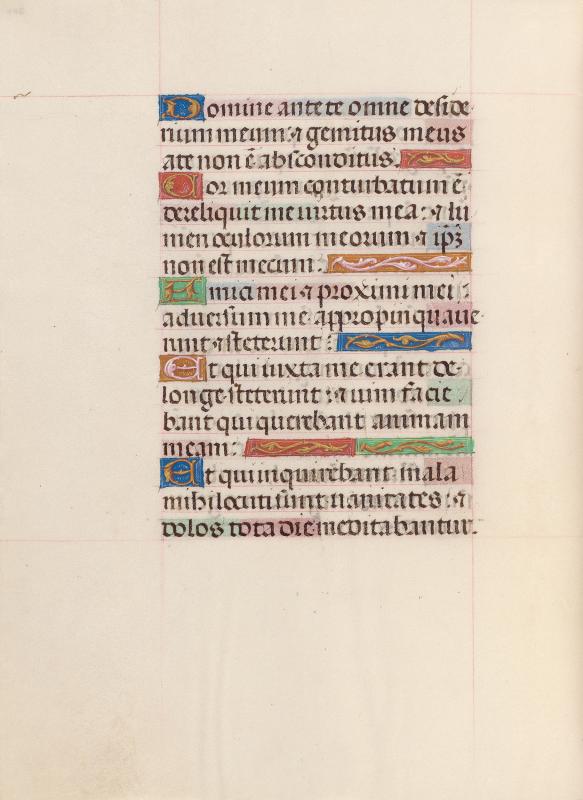 Domine ante te omne deside
rium meum ⁊ gemitus meus
a te non ē absconditus.
Cor meum conturbatum ē
dereliquit me uirtus mea: ⁊ lu
men oculorum meorum ⁊ ip̄ꝫ
non est mecum:
Amici mei ⁊ proximi mei:
aduersum me appropinquaue
runt ⁊ steterunt:
Et qui iuxta me erant de
longe steterunt: ⁊ uim facie
bant qui querebant animam
meam:
Et qui inquirebant mala
mihi locuti sunt uanitates: ⁊
dolos tota die meditabantur.